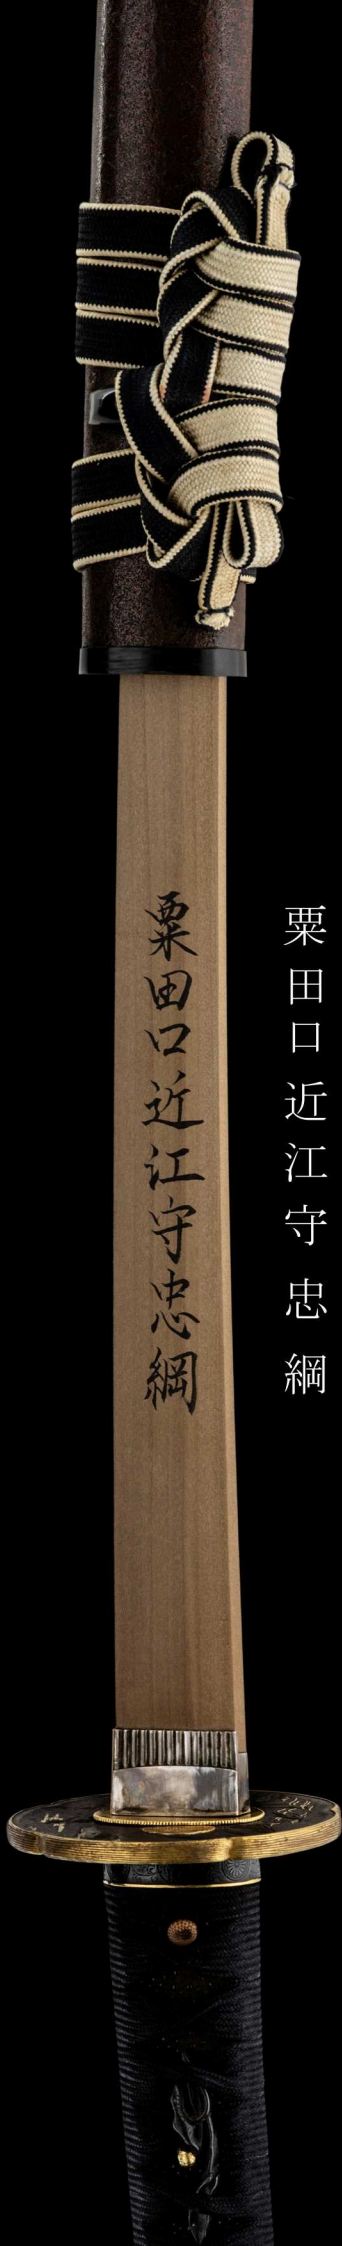 粟田口近江守忠綱
粟田口近江守忠綱